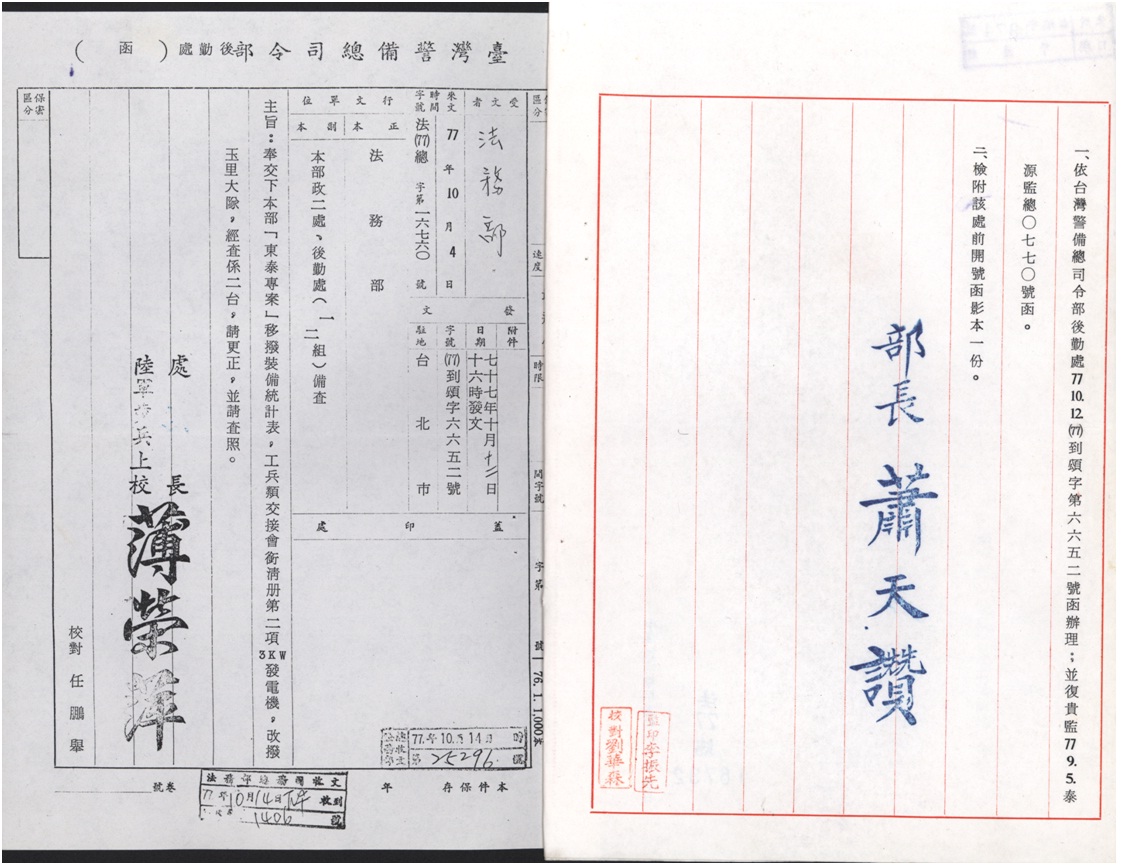 一、依台灣警備總司令部後勤處77.10.12.(77)到頌字第六六五二號函辦理；並復貴監77.9.5.泰
源監總〇七七〇號函。
二、檢附該處前開號函影本一份。
部長 蕭天讚
監印李振先
校對劉華森
臺灣警備總司令部後勤處（函）
速度
時限
字第 號
76.1.1,000本
受文者
法務部
來文
時間
77年10月4日
字號
法(77)總字第一六七六〇號
行文單位
正本
法務部
副本
本部政二處、後勤處（一二組）備查
發文
附件
日期
七十七年十月十二日
十六時發文
字號
(77)到頌字六六五二號
駐地
台北市
蓋印處
主旨：奉交下本部「東泰專案」移撥裝備統計表，工兵類交接會銜清册第二項3KW發電機，改撥
玉里大隊，經查係二台，請更正，並請查照。
處長
陸軍步兵上校
薄榮渾
校對 任鵬舉
保密區分
77.年10.月14日
第25296號
收文
77年10月14日
1406
本件保存 年
卷號